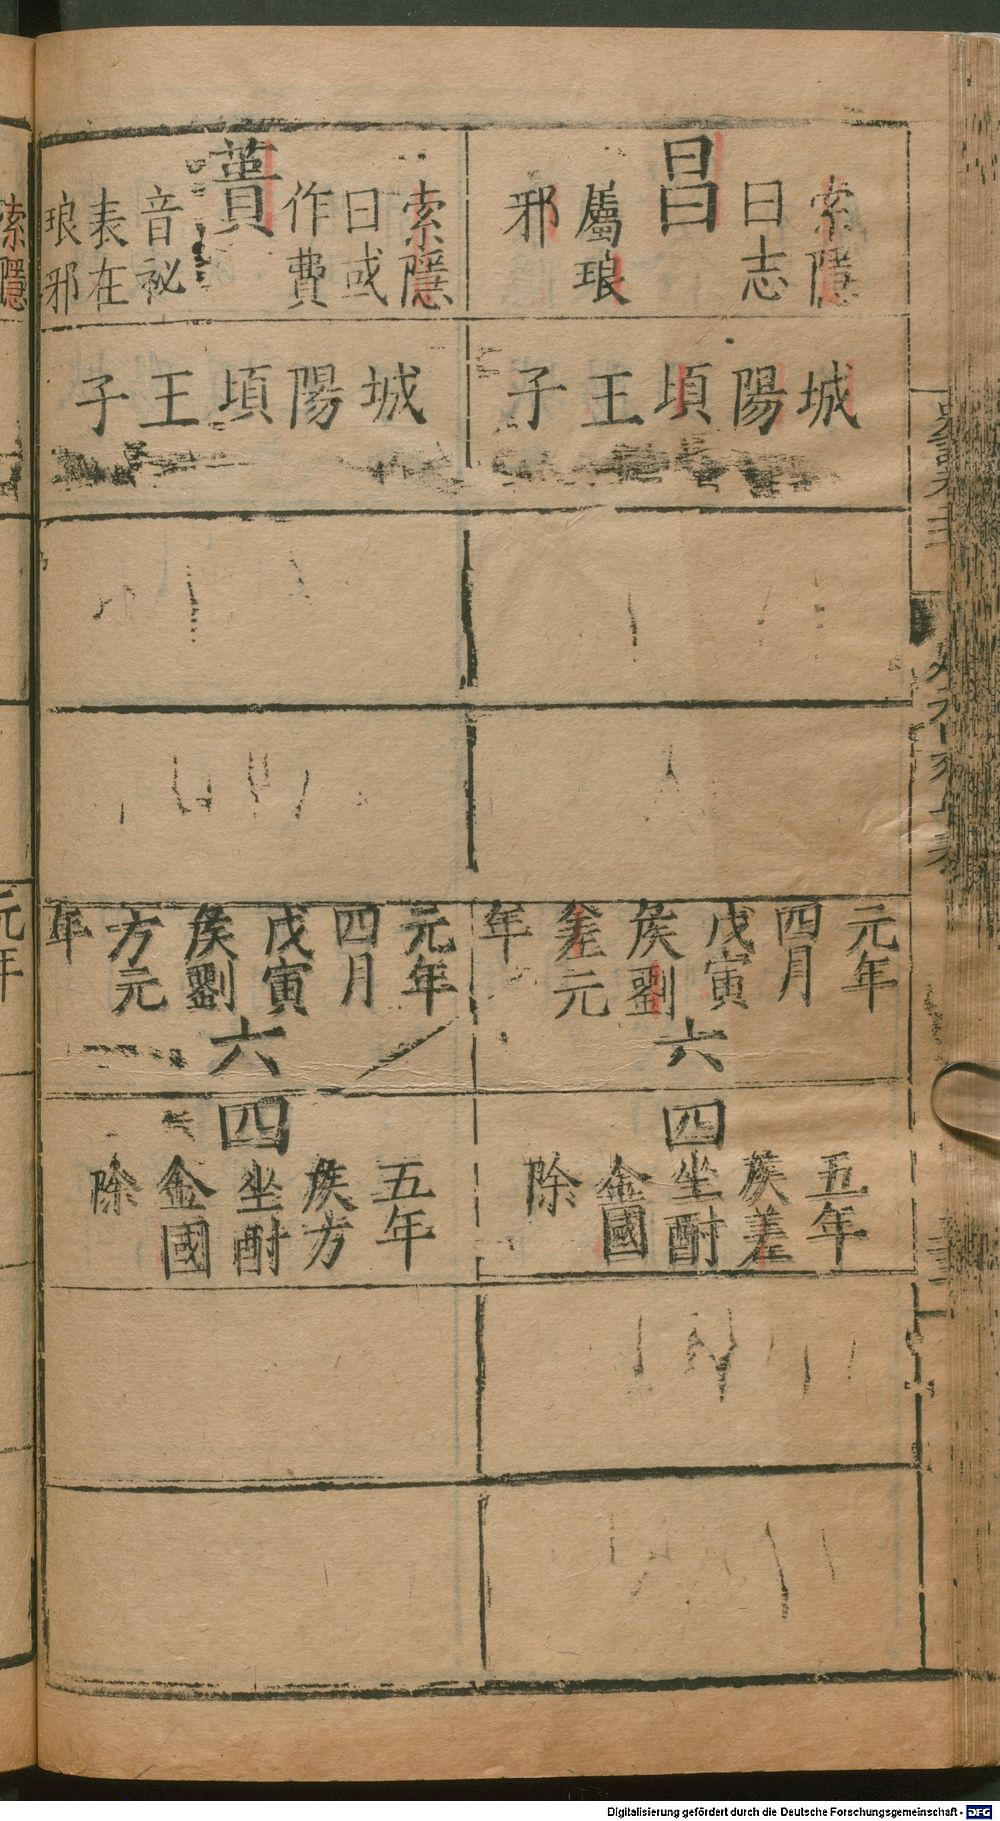 昌
索隱
曰志
屬琅
邪
城陽頃王子
元年
四月
戊寅
侯劉
差元
年
六
四
五年
侯差
坐酎
金國
除
蕢
索隱
曰或
作費
音祕
表在
琅邪
城陽頃王子
元年
四月
戊寅
侯劉
方元
年
六
四
五年
侯方
坐酎
金國
除
索隱
元年
Digitalisierung gefördert durch die Deutsche Forschungsgemeinschaft - DFG